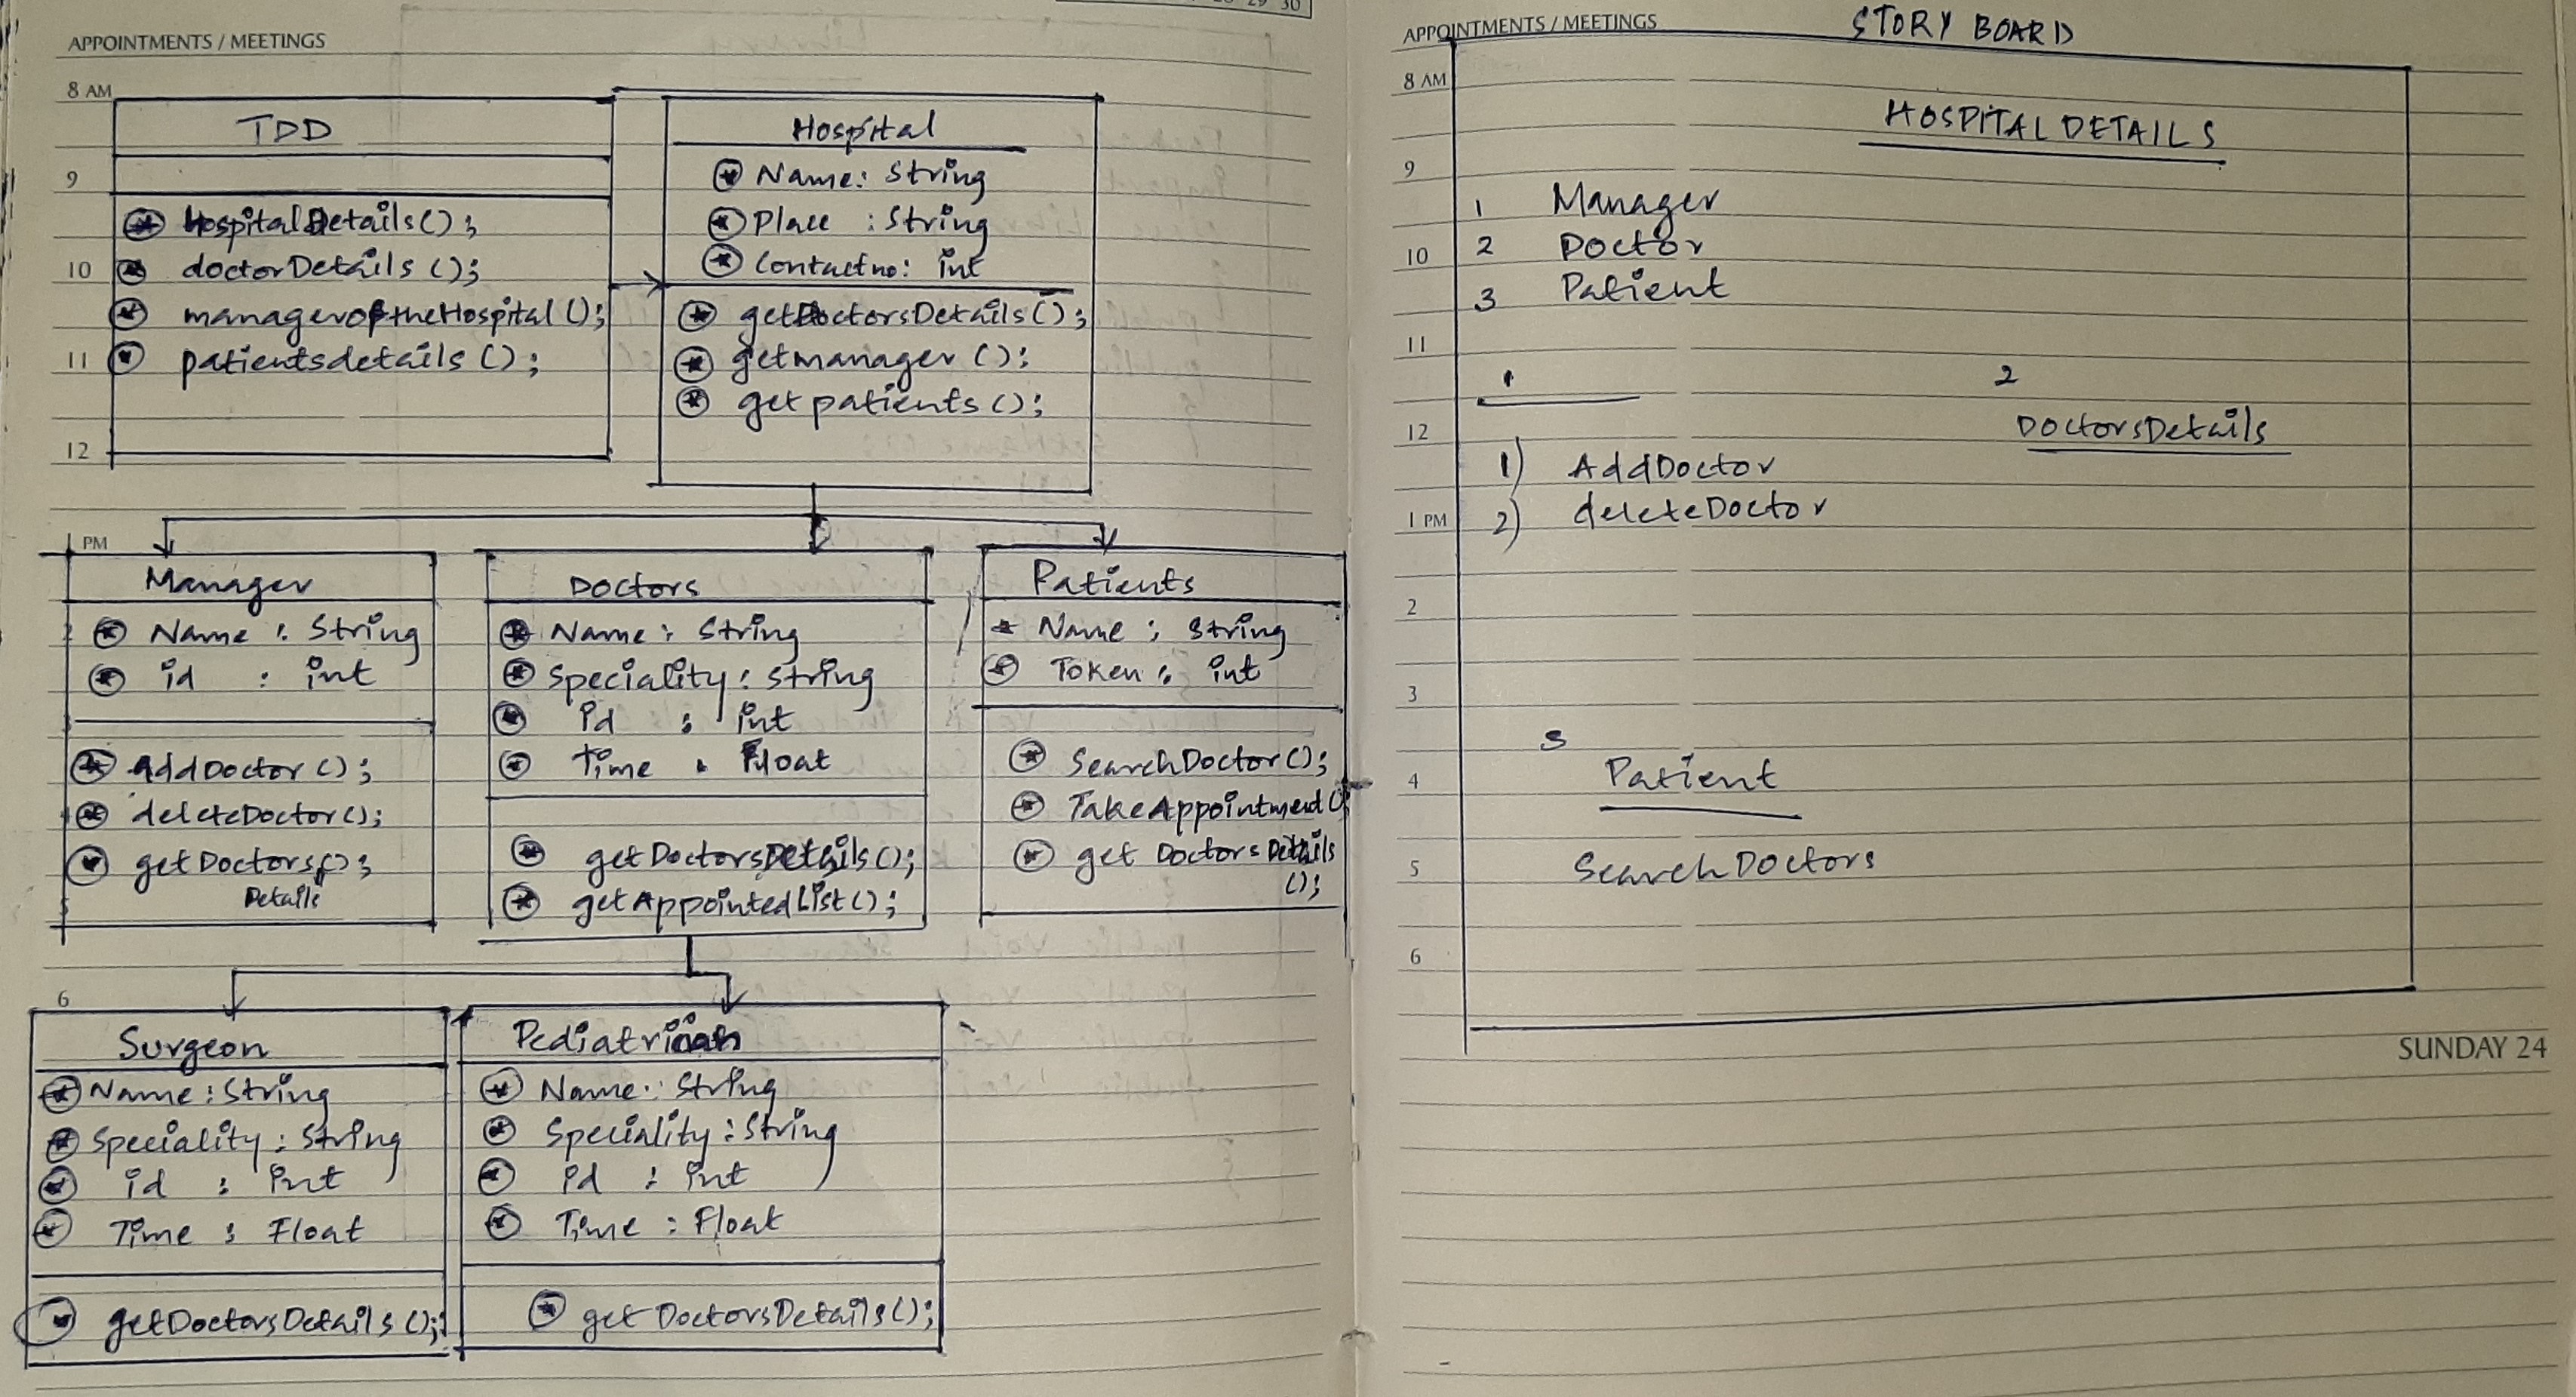 28 29 30
APPOINTMENTS / MEETINGS
8 AM
9
10
11
12
1 PM
6
TDD
HospitalDetails();
doctorDetails();
manageroftheHospital();
patientsdetails();
Hospital
Name: String
Place : String
Contactno: int
getDoctorsDetails();
getmanager();
getpatients();
Manager
Name : String
id : int
AddDoctor();
deleteDoctor();
getDoctors();
Details
Doctors
Name: String
Speciality: String
id : int
Time : Float
getDoctorsDetails();
getAppointedList();
Patients
Name : String
Token : int
SearchDoctor();
TakeAppointment()
get DoctorsDetails
();
Surgeon
Name: String
Speciality: String
id : int
Time : Float
getDoctorsDetails();
Pediatrician
Name: String
Speciality: String
id : int
Time : Float
get DoctorsDetails();
APPOINTMENTS / MEETINGS
STORY BOARD
8 AM
9
10
11
12
1 PM
2
3
4
5
6
HOSPITAL DETAILS
1 Manager
2 Doctor
3 Patient
1
2
DoctorsDetails
1) AddDoctor
2) deleteDoctor
3
Patient
SearchDoctors
SUNDAY 24